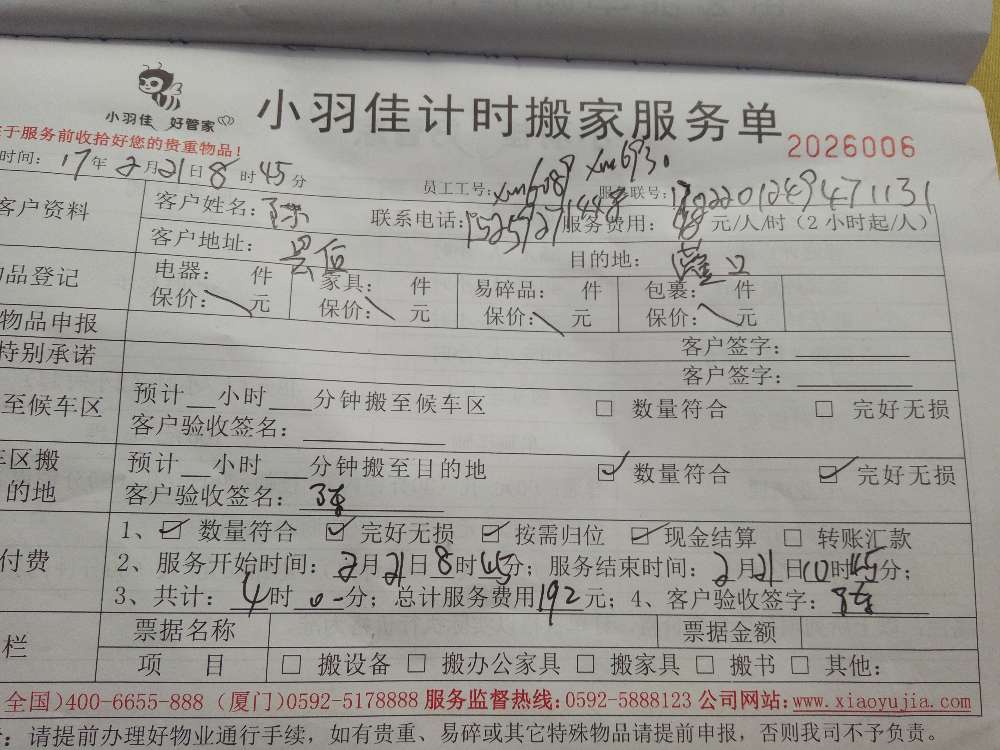 小羽佳 好管家
小羽佳计时搬家服务单
2026006
于服务前收拾好您的贵重物品!
时间: 17年 2月21日8时45分
员工工号: xm6089 xm6930
服务联号: 202201249471131
客户资料 客户姓名: 陈 联系电话: 服务费用: 48 元/人/时(2小时起/人)
客户地址: 目的地:
品登记 电器: 件 家具: 件 易碎品: 件 包裹: 件
保价: 元 保价: 元 保价: 元 保价: 元
物品申报 客户签字:
特别承诺 客户签字:
至候车区 预计 小时 分钟搬至候车区 □ 数量符合 □ 完好无损
客户验收签名:
车区搬 预计 小时 分钟搬至目的地 ☑ 数量符合 ☑ 完好无损
的地 客户验收签名: 陈
付费 1、☑ 数量符合 ☑ 完好无损 ☑ 按需归位 ☑ 现金结算 □ 转账汇款
2、服务开始时间: 2月21日8时45分; 服务结束时间: 2月21日10时45分;
3、共计: 4时 0分; 总计服务费用192元; 4、客户验收签字: 陈
栏 票据名称 票据金额
项 目 □ 搬设备 □ 搬办公家具 □ 搬家具 □ 搬书 □ 其他:
全国)400-6655-888 (厦门)0592-5178888 服务监督热线:0592-5888123 公司网站:www.xiaoyujia.com
:请提前办理好物业通行手续,如有贵重、易碎或其它特殊物品请提前申报,否则我司不予负责。